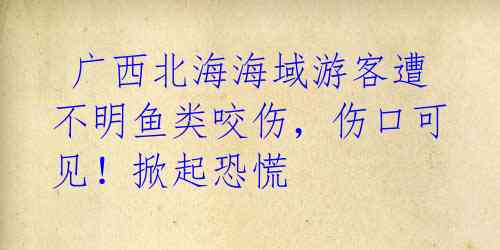 广西北海海域游客遭
不明鱼类咬伤，伤口可
见！掀起恐慌